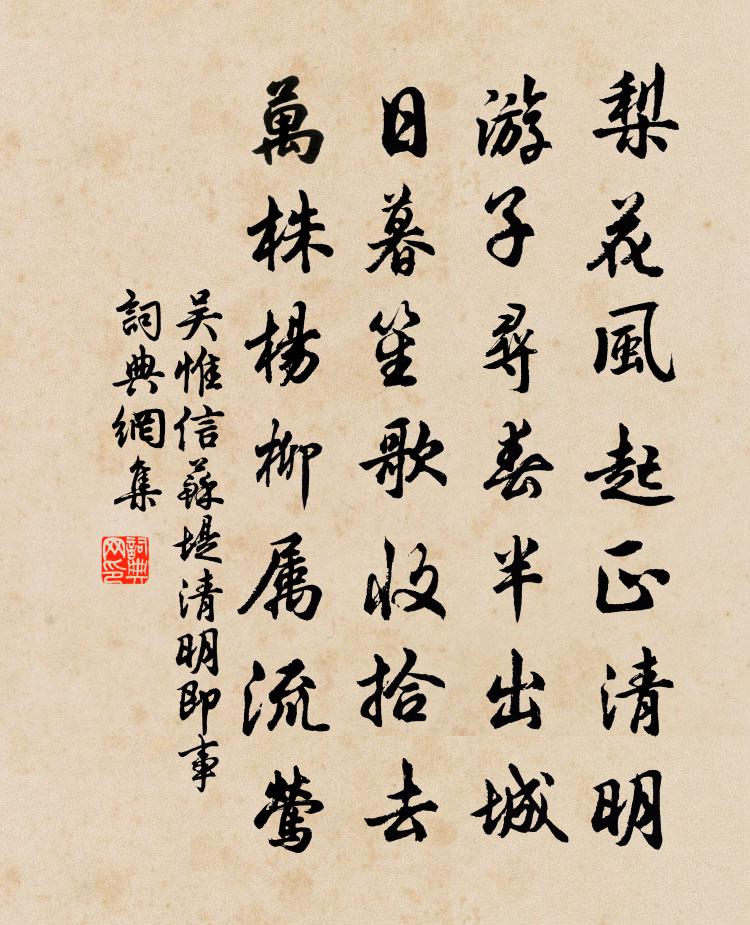 梨花風起正清明
游子尋春半出城
日暮笙歌收拾去
萬株楊柳属流鶯
吴惟信蘇堤清明即事
詞典網集
詞典網印